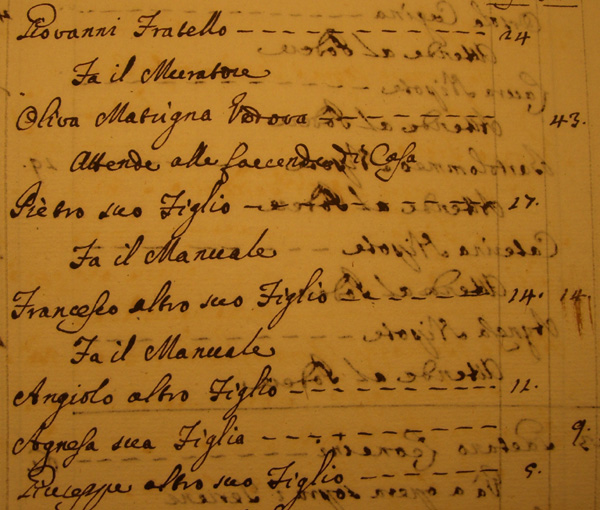 Giovanni Fratello 24
Fa il Muratore
Oliva Matrigna Vedova 43.
Attende alle faccende di Casa
Pietro suo Figlio 17.
Fa il Manuale
Francesco altro suo Figlio 14. 14
Fa il Manuale
Angiolo altro Figlio 11.
Agnesa sua Figlia 9.
Giuseppe altro suo Figlio 5.